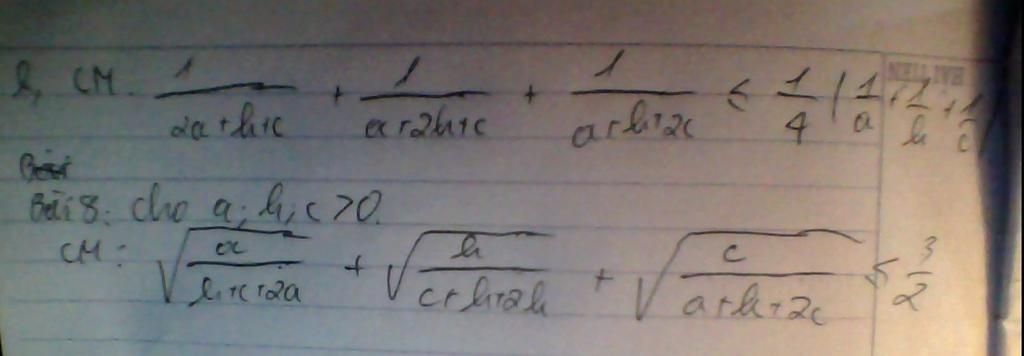 b, CM. 1/(2a+b+c) + 1/(a+2b+c) + 1/(a+b+2c) ≤ 1/4 (1/a + 1/b + 1/c)
Bài 8: cho a; b, c > 0.
CM: √(a/(b+c+2a)) + √(b/(c+b+2b)) + √(c/(a+b+2c)) ≤ 3/2